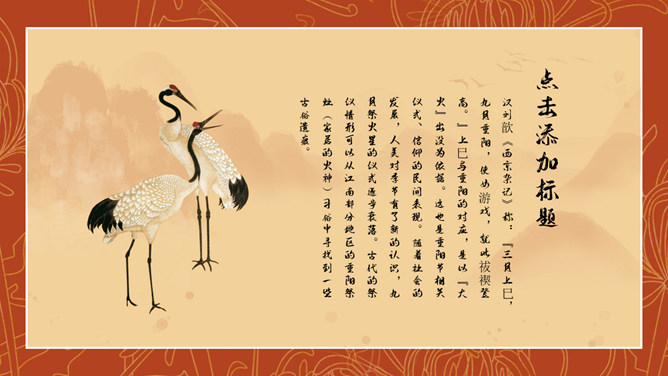 点击添加标题
汉刘歆《西京杂记》称：『三月上巳，
九月重阳，使女游戏，就此祓禊登
高。』上巳与重阳的对应，是以『大
火』出没为依据。这也是重阳节相关
仪式、信仰的民间表现。随着社会的
发展，人类对季节有了新的认识，九
月祭火星的仪式逐步衰落。古代的祭
仪情形可以从江南部分地区的重阳祭
灶（家居的火神）习俗中寻找到一些
古俗遗痕。